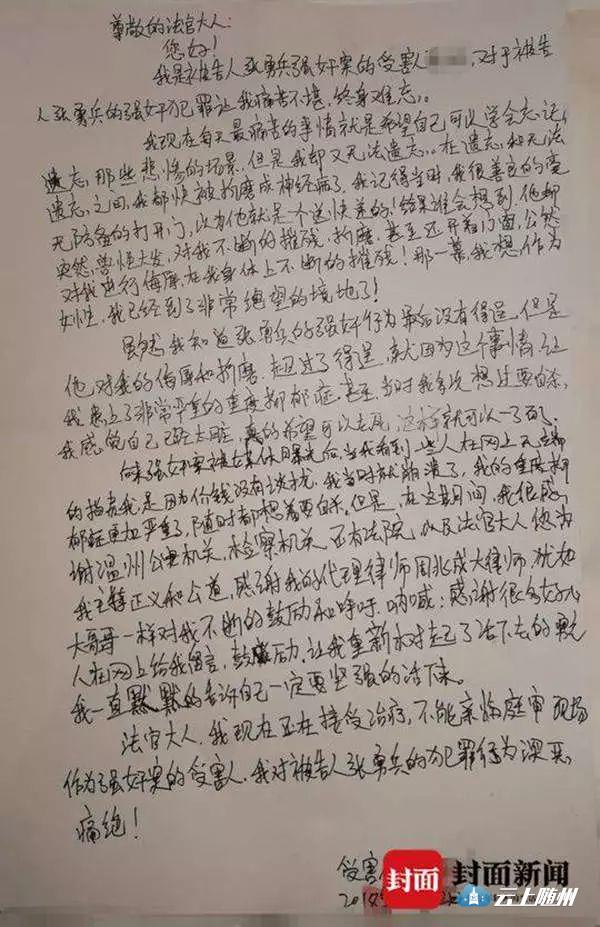 尊敬的法官大人:
您好!
我是被告人张勇兵强奸案的受害人 ,对于被告
人张勇兵的强奸犯罪让我痛苦不堪,终身难忘。
我现在每天最痛苦的事情就是希望自己可以学会忘记,
遗忘,那些悲惨的场景,但是我却又无法遗忘。在遗忘,和无法
遗忘,之间,我都快被折磨成神经病了。我记得当时,我很善良的变
无防备的打开门,以为他就是个送快递的!结果谁会想到,他却
突然,兽性大发,对我不断的摧残,折磨,甚至还开着门面,公然
对我进行侮辱,在我身体上不断的摧残!那一幕,我想,作为
女性,我已经到了非常绝望的境地了!
虽然,我知道张勇兵的强奸行为最后没有得逞,但是
他,对我的侮辱和折磨,超过了得逞,就因为这个事情,让
我患上了非常严重的重度抑郁症,甚至,当时我多次想过要自杀,
我感觉自己已经太脏,真的希望可以去死,这样就可以一了百了。
强奸案被媒体曝光后,当我看到一些人在网上
的指责我是因为价钱没有谈拢,我当时就崩溃了,我的重度抑
郁症更加严重了,随时都想着要自杀。但是,在这期间,我很感
谢温州公安机关,检察机关,还有法院,以及法官大人您为
我主持正义和公道,感谢我的代理律师周兆成大律师,犹如
大哥哥一样对我不断的鼓励和呼吁,呐喊;感谢很多好心
人在网上给我留言,鼓励,让我重新树起了活下去的勇气
我一直默默的告诉自己一定要坚强的活下来。
法官大人,我现在正在接受治疗,不能亲临庭审现场
作为强奸案的受害人,我对被告人张勇兵的犯罪行为深恶
痛绝!
受害
201
封面 封面新闻
云上随州